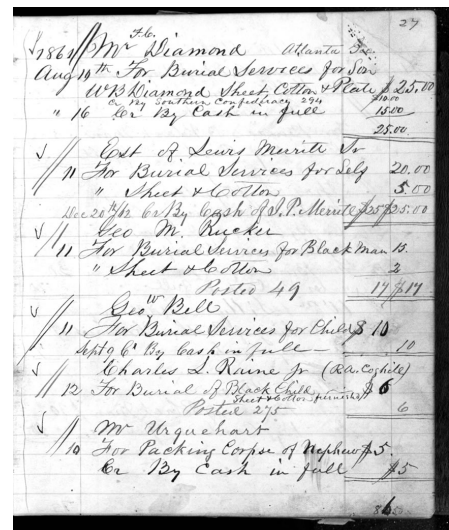 27
1861 Mr F.C. Diamond Atlanta Ga
Aug 10th For Burial Services for Son
W B Diamond Sheet Cotton & Plate $25.00
Cr By Southern Confederacy 294 $10.00
" 16 Cr By Cash in full 15.00
25.00
Est of Lewis Merritt Sr
11 For Burial Services for Self 20.00
" Sheet & Cotton 5.00
Dec 20th/62 Cr By Cash of J. P. Merritt $25 $25.00
Geo M. Rucker
11 For Burial Services for Black Man 15.
" Sheet & Cotton 2
Posted 49 17 $17
Geo W Bell
11 For Burial Services for Child $10
Sept 9 Cr By Cash in full — 10
Charles L. Raine Jr (R.A. Coghill)
12 For Burial of Black Child $6
Sheet & Cotton furnished
Posted 275 6
Mr Urquehart
10 For Packing Corpse of Nephew $5.
Cr By Cash in full $5